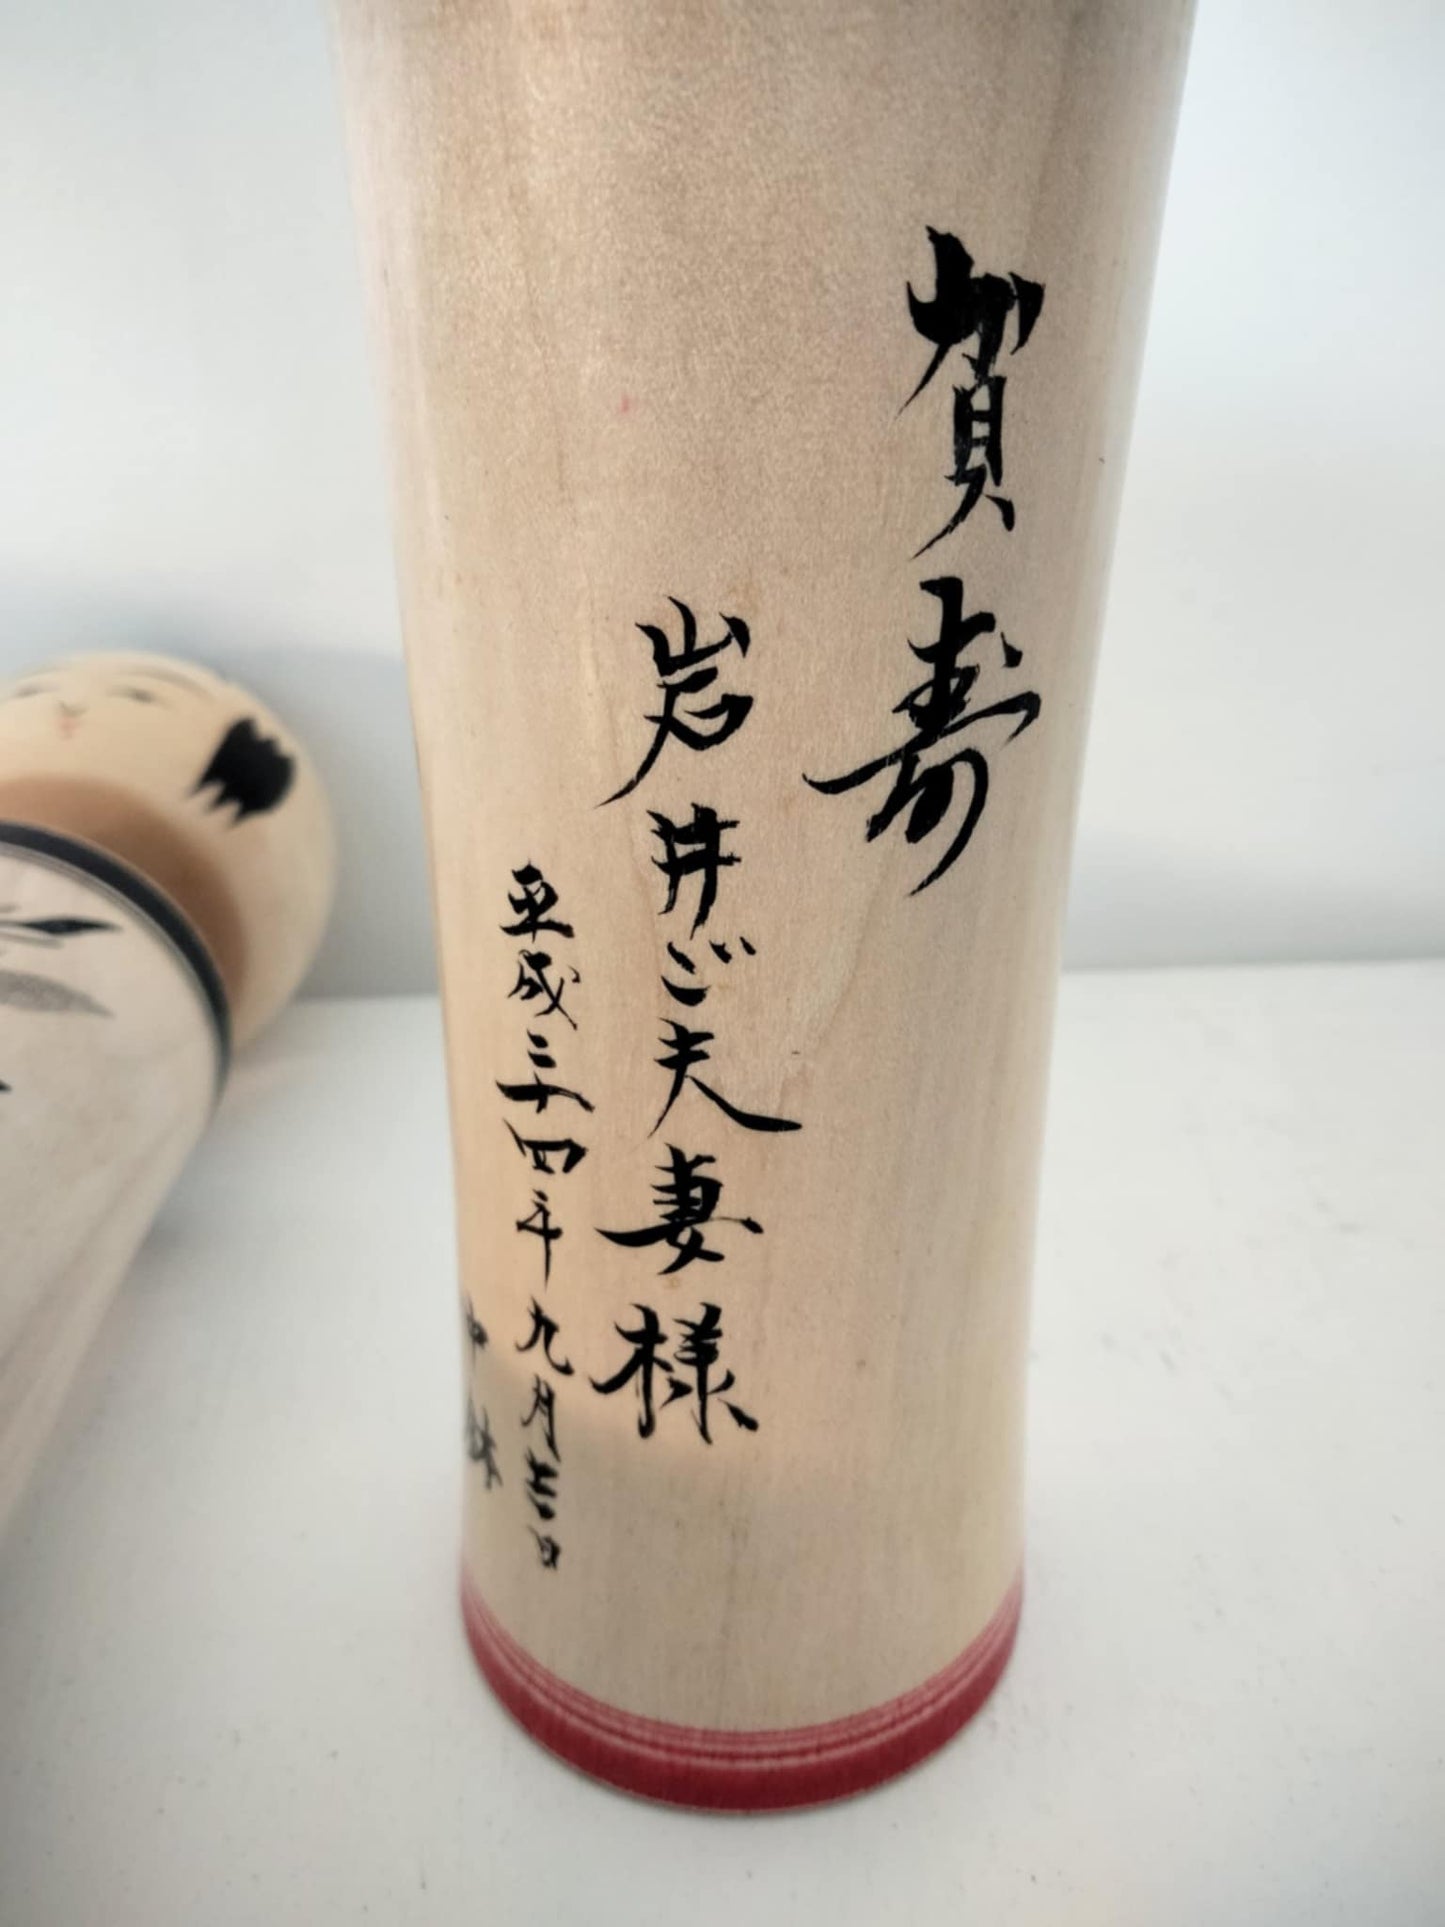 賀寿
岩井ご夫妻様
平成二十四年九月吉日